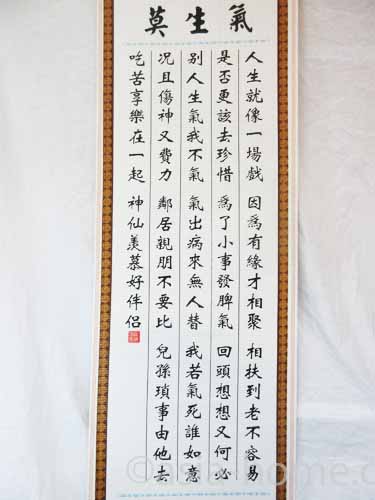 莫生氣
人生就像一場戲 因爲有緣才相聚 相扶到老不容易
是否更該去珍惜 爲了小事發脾氣 回頭想想又何必
别人生氣我不氣 氣出病來無人替 我若氣死誰如意
况且傷神又費力 鄰居親朋不要比 兒孫瑣事由他去
吃苦享樂在一起 神仙羡慕好伴侶